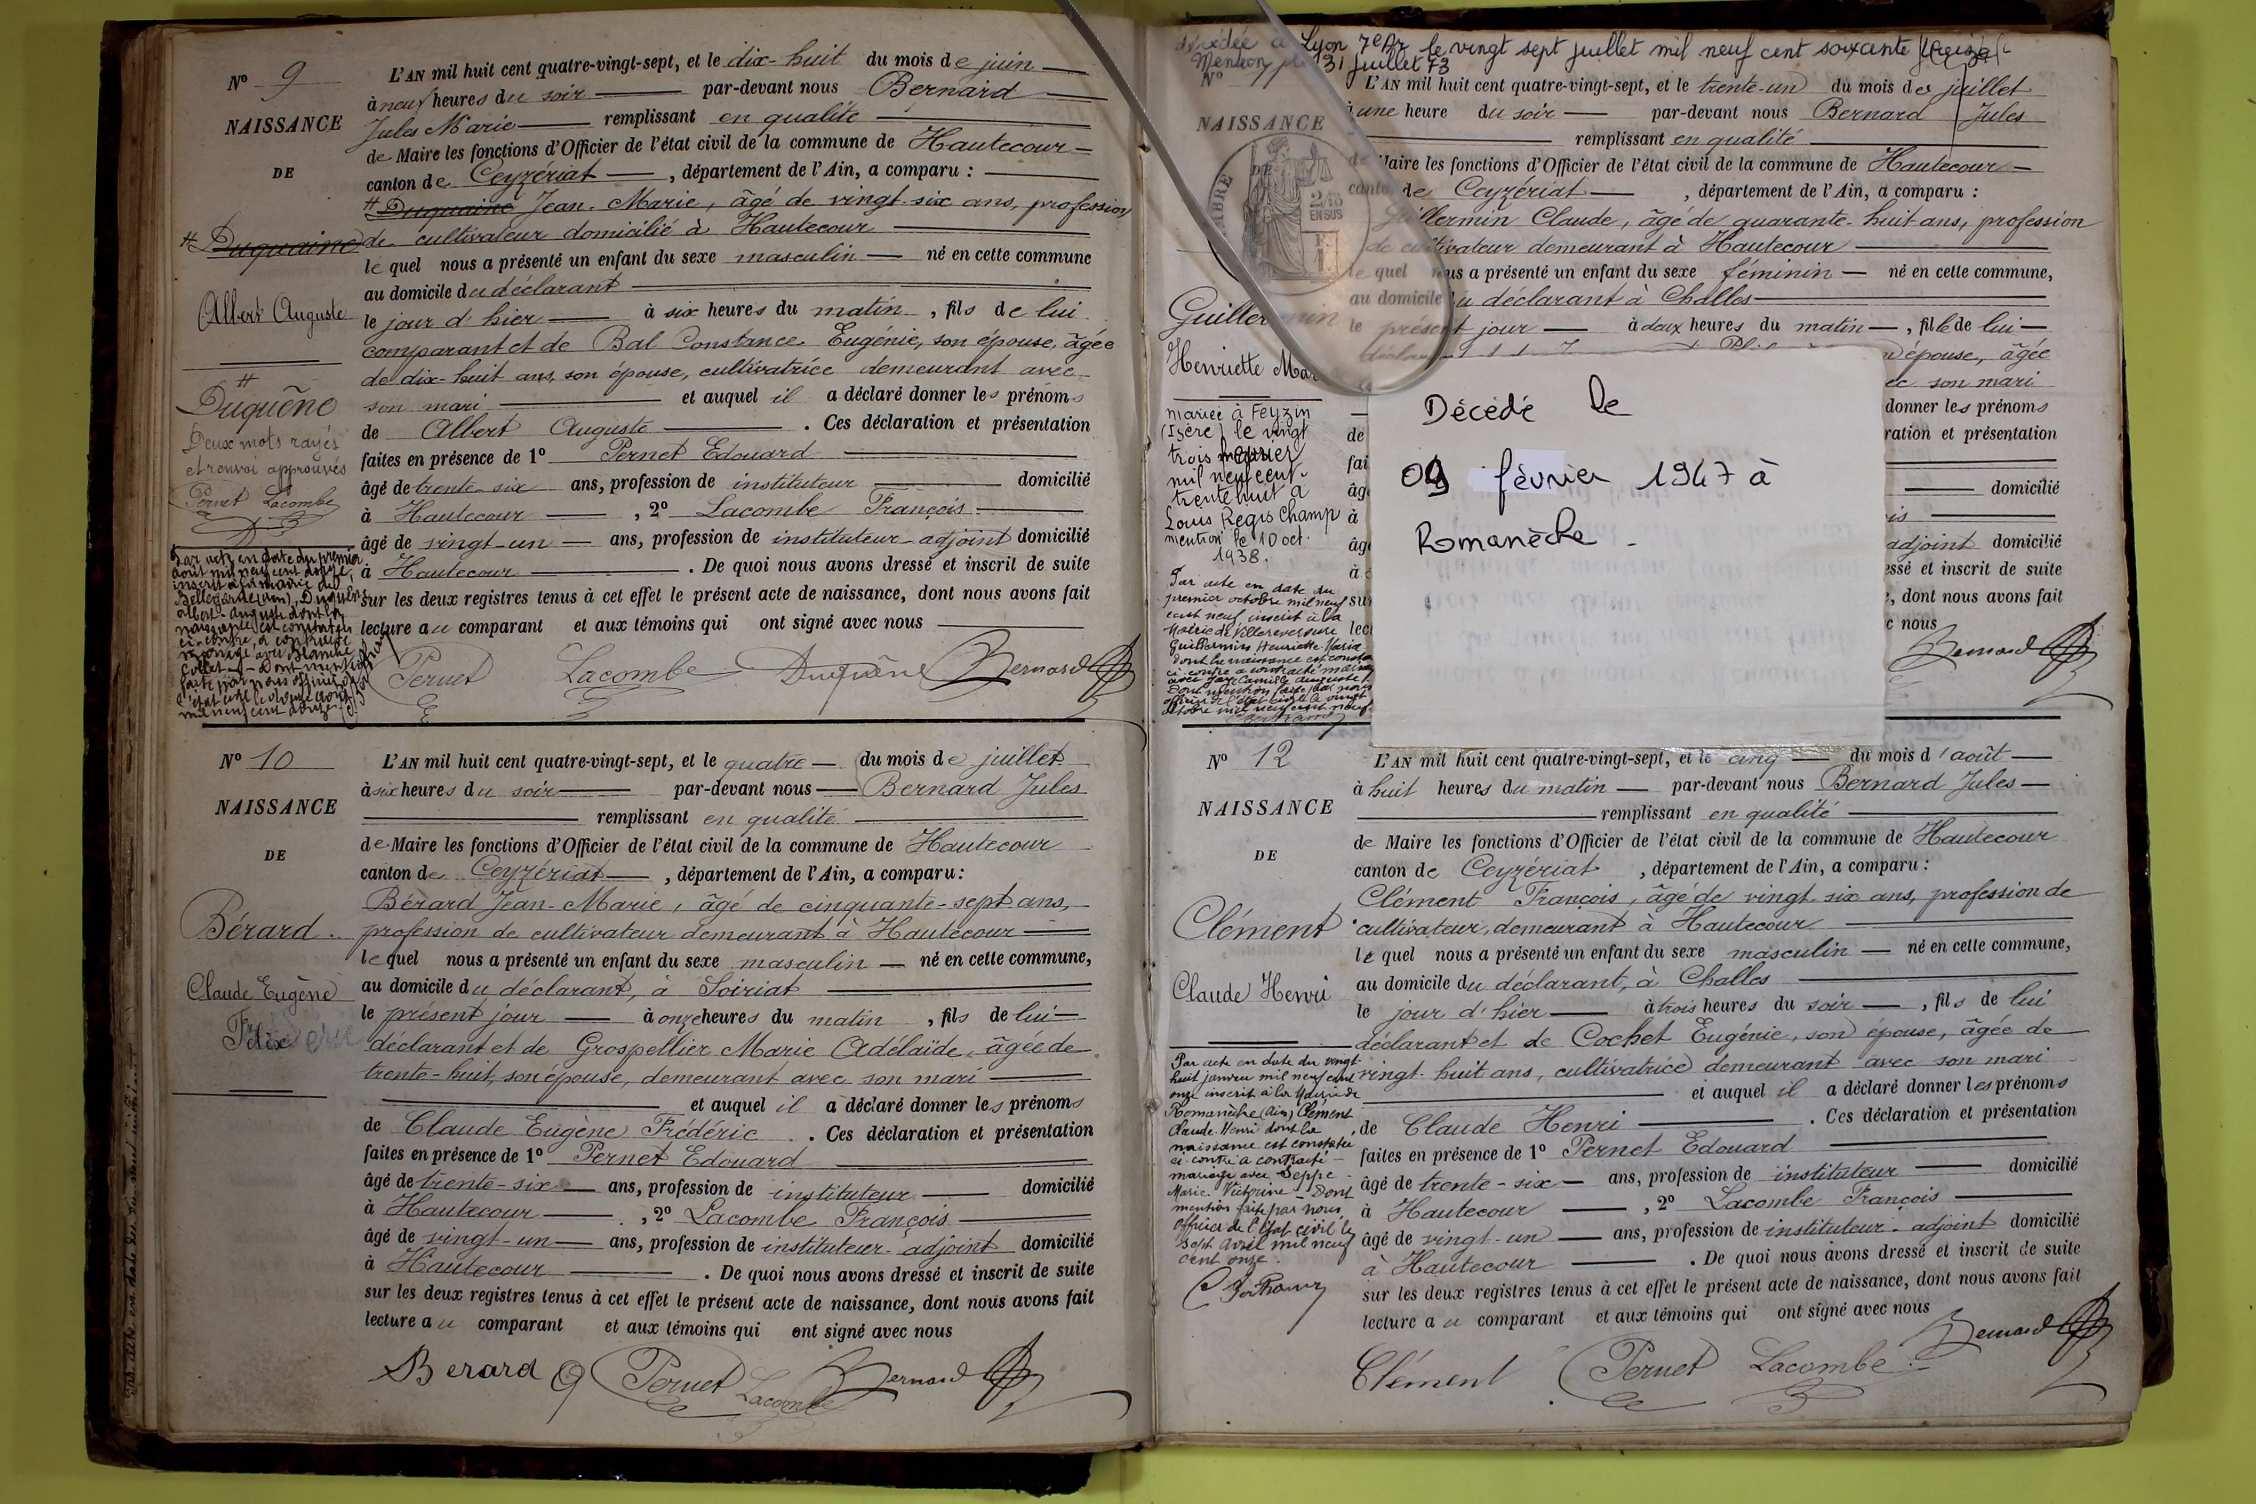 Nº 9
NAISSANCE
DE
# Duquaine
Albert Auguste
#
Duquêne
Deux mots rayés
et renvoi approuvés
Pernet Lacombe
Par acte en date du premier
août mil neuf cent douze,
inscrit à la mairie de
Bellegarde (Ain), Duquêne
Albert-Auguste dont la
naissance est constatée
ci-contre, a contracté
mariage avec Blanche
Collet. Dont mention
faite par nous officier de
l'état civil le
mil neuf cent douze
L'AN mil huit cent quatre-vingt-sept, et le dix-huit du mois de juin
à neuf heures du soir par-devant nous Bernard
Jules Marie remplissant en qualité
de Maire les fonctions d'Officier de l'état civil de la commune de Hautecour
canton de Ceyzériat, département de l'Ain, a comparu :
# Duquaine Jean-Marie, âgé de vingt-six ans, profession
de cultivateur domicilié à Hautecour
lequel nous a présenté un enfant du sexe masculin né en cette commune
au domicile du déclarant
le jour d'hier à six heures du matin, fils de lui
comparant et de Bal Constance Eugénie, son épouse, âgée
de dix-huit ans, son épouse, cultivatrice demeurant avec
son mari et auquel il a déclaré donner les prénoms
de Albert Auguste. Ces déclaration et présentation
faites en présence de 1º Pernet Edouard
âgé de trente-six ans, profession de instituteur domicilié
à Hautecour, 2º Lacombe François
âgé de vingt-un ans, profession de instituteur-adjoint domicilié
à Hautecour. De quoi nous avons dressé et inscrit de suite
sur les deux registres tenus à cet effet le présent acte de naissance, dont nous avons fait
lecture au comparant et aux témoins qui ont signé avec nous
Pernet Lacombe Duquêne Bernard
Nº 10
NAISSANCE
DE
Bérard
Claude Eugène
L'AN mil huit cent quatre-vingt-sept, et le quatre du mois de juillet
à six heures du soir par-devant nous Bernard Jules
remplissant en qualité
de Maire les fonctions d'Officier de l'état civil de la commune de Hautecour
canton de Ceyzériat, département de l'Ain, a comparu :
Bérard Jean-Marie, âgé de cinquante-sept ans,
profession de cultivateur demeurant à Hautecour
lequel nous a présenté un enfant du sexe masculin né en cette commune,
au domicile du déclarant, à Soiriat
le présent jour à onze heures du matin, fils de lui
déclarant et de Grospellier Marie Adélaïde, âgée de
trente-huit, son épouse, demeurant avec son mari
et auquel il a déclaré donner les prénoms
de Claude Eugène Frédéric. Ces déclaration et présentation
faites en présence de 1º Pernet Edouard
âgé de trente-six ans, profession de instituteur domicilié
à Hautecour, 2º Lacombe François
âgé de vingt-un ans, profession de instituteur-adjoint domicilié
à Hautecour. De quoi nous avons dressé et inscrit de suite
sur les deux registres tenus à cet effet le présent acte de naissance, dont nous avons fait
lecture au comparant et aux témoins qui ont signé avec nous
Berard Pernet Lacombe Bernard
Décédée à Lyon 7e Ar le vingt sept juillet mil neuf cent soixante treize
Mention 31 juillet 73
Nº
NAISSANCE
TIMBRE
2/10
EN SUS
Guillermin
Henriette Mar
mariée à Feyzin
(Isère) le vingt
trois
mil neuf cent
trente huit à
Louis Régis Champ
mention le 10 oct.
1938.
Par acte en date du
premier octobre mil neuf
cent neuf, inscrit à la
Mairie de Villereversure
Guillermin Henriette Maria
dont la naissance est consta
ci contre a contracté mariage
avec Camille Auguste
Dont mention faite par nous
officier de l'état civil le vingt
octobre mil neuf cent neuf
L'AN mil huit cent quatre-vingt-sept, et le trente-un du mois de juillet
à une heure du soir par-devant nous Bernard Jules
remplissant en qualité
de Maire les fonctions d'Officier de l'état civil de la commune de Hautecour
canton de Ceyzériat, département de l'Ain, a comparu :
Guillermin Claude, âgé de quarante-huit ans, profession
de cultivateur demeurant à Hautecour
lequel nous a présenté un enfant du sexe féminin né en cette commune,
au domicile du déclarant à Challes
le présent jour à deux heures du matin, fille de lui
épouse, âgée
ec son mari
donner les prénoms
de ration et présentation
fai
âg domicilié
à is
âgé adjoint domicilié
à essé et inscrit de suite
sur e, dont nous avons fait
lec c nous
Bernard
Décédé le
09 février 1947 à
Romanèche.
Nº 12
NAISSANCE
DE
Clément
Claude Henri
Par acte en date du vingt
huit janvier mil neuf cent
onze inscrit à la Mairie de
Romanèche (Ain) Clément
Claude Henri dont la
naissance est constatée
ci-contre a contracté
mariage avec Seppe
Marie Victorine. Dont
mention faite par nous
officier de l'Etat civil le
sept avril mil neuf
cent onze.
L'AN mil huit cent quatre-vingt-sept, et le cinq du mois d'août
à huit heures du matin par-devant nous Bernard Jules
remplissant en qualité
de Maire les fonctions d'Officier de l'état civil de la commune de Hautecour
canton de Ceyzériat, département de l'Ain, a comparu :
Clément François, âgé de vingt-six ans, profession de
cultivateur, demeurant à Hautecour
lequel nous a présenté un enfant du sexe masculin né en cette commune,
au domicile du déclarant, à Challes
le jour d'hier à trois heures du soir, fils de lui
déclarant et de Cochet Eugénie, son épouse, âgée de
vingt-huit ans, cultivatrice demeurant avec son mari
et auquel il a déclaré donner les prénoms
de Claude Henri. Ces déclaration et présentation
faites en présence de 1º Pernet Edouard
âgé de trente-six ans, profession de instituteur domicilié
à Hautecour, 2º Lacombe François
âgé de vingt-un ans, profession de instituteur-adjoint domicilié
à Hautecour. De quoi nous avons dressé et inscrit de suite
sur les deux registres tenus à cet effet le présent acte de naissance, dont nous avons fait
lecture au comparant et aux témoins qui ont signé avec nous
Clément Pernet Lacombe Bernard